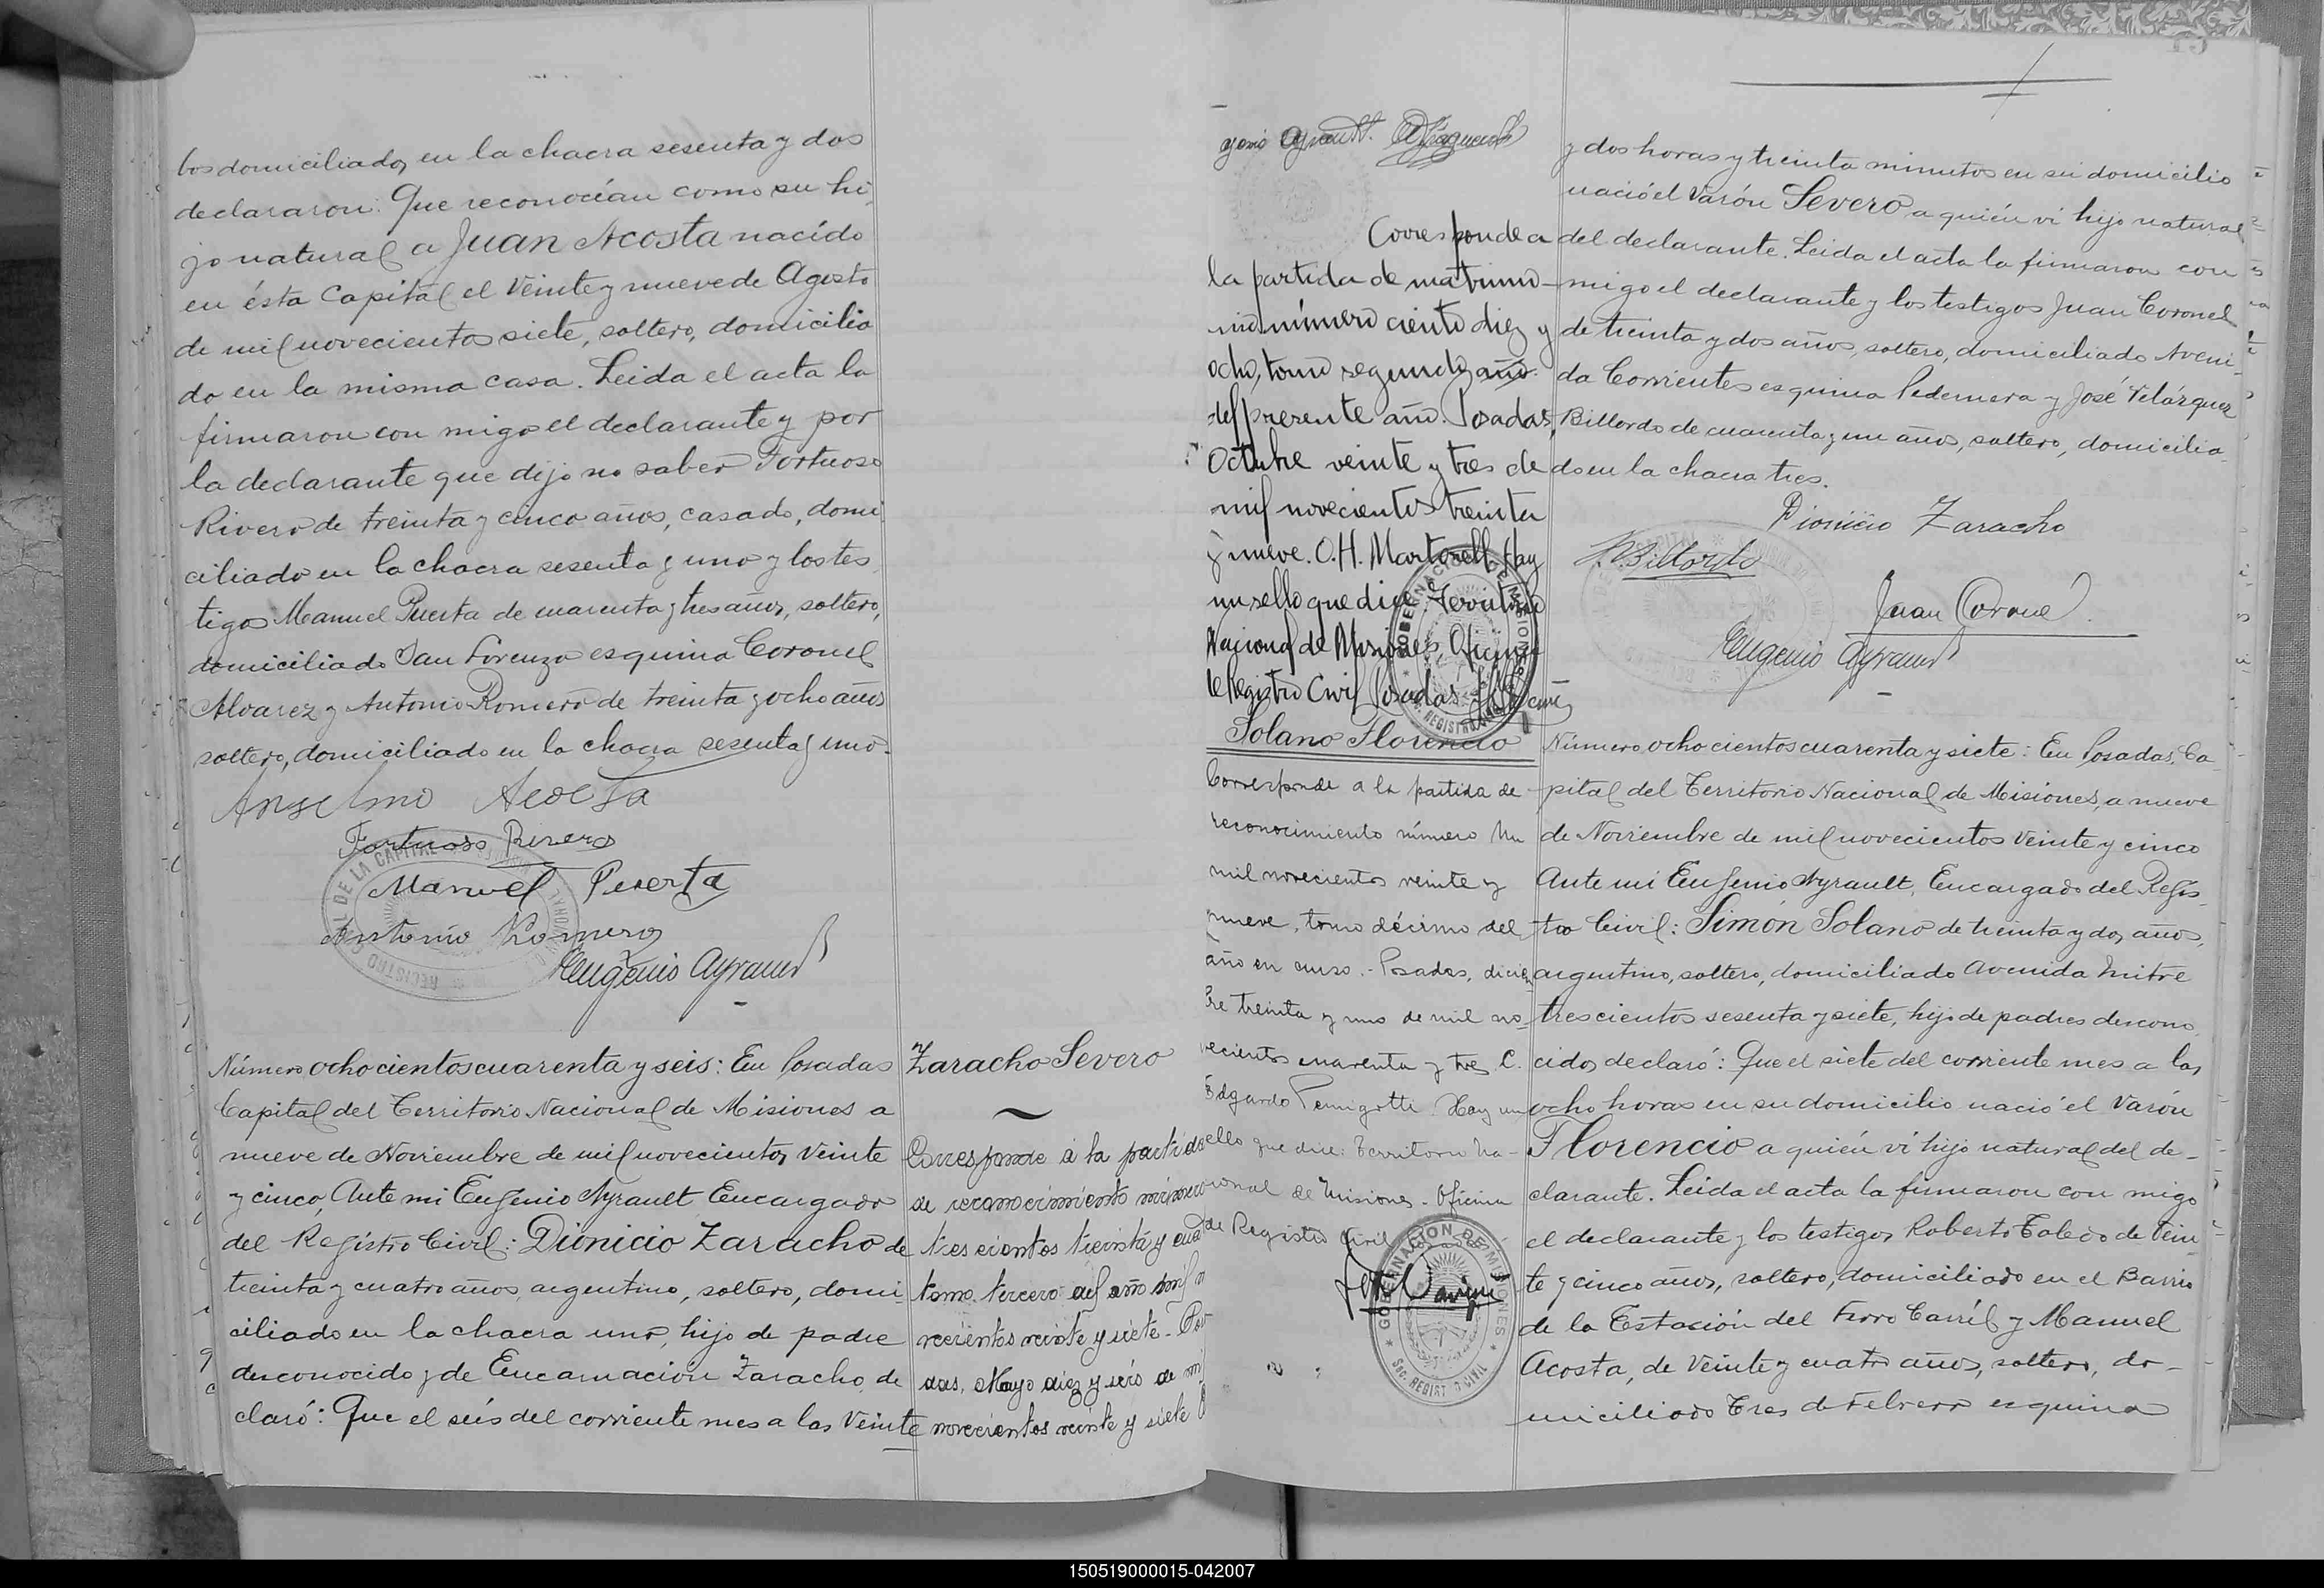 bos domiciliados en la chacra sesenta y dos
declararon: Que reconocían como su hi
jo natural a Juan Acosta nacído
en ésta Capital el Veinte y nueve de Agosto
de mil novecientos siete, soltero, domicilia
do en la misma casa. Leida el acta la
firmaron con migo el declarante y por
la declarante que dijo no saber Fortuoso
Rivero de treinta y cinco años, casado, domi
ciliado en la chacra sesenta y uno y los tes
tigos Manuel Puerta de cuarenta y tres años, soltero,
domiciliado San Lorenzo esquina Coronel
Alvarez y Antonio Romero de treinta y ocho años
soltero, domiciliado en la chacra sesenta y uno.
Anselmo Acosta
Fortuoso Rivero
Manuel Puerta
Antonio Romero
Eugenio Ayrault
Número ochocientos cuarenta y seis: En Posadas
Capital del Territorio Nacional de Misiones a
nueve de Noviembre de mil novecientos Veinte
y cinco, Ante mi Eugenio Ayrault Encargado
del Registro Civil: Dionicio Zaracho de
treinta y cuatro años, argentino, soltero, domi-
ciliado en la chacra uno, hijo de padre
desconocido y de Encarnación Zaracho, de
claró: Que el seis del corriente mes a las Veinte
Zaracho Severo
Corresponde á la partida
de reconocimiento número
tres cientos treinta y cua
tomo tercero del año mil
vecientos veinte y siete. Pos
adas, Mayo diez y seis de mi
novecientos veinte y siete
genio Ayrault.
Corresponde a
la partida de matrimo-
nio número ciento diez y
ocho, tomo segundo año
del presente año. Posadas,
Octubre veinte y tres de
mil novecientos treinta
y nueve. O.H. Martorell. Hay
un sello que dice: Territorio
Nacional de Misiones, Oficina
de Registro Civil Posadas.
y dos horas y treinta minutos en su domicilio
nació el Varón Severo a quién vi hijo natural
del declarante. Leida el acta la firmaron con
migo el declarante y los testigos Juan Coronel
de treinta y dos años, soltero, domiciliado Aveni-
da Corrientes esquina Pedernera y José Velázquez
Billordo de cuarenta y un años, soltero, domicilia
do en la chacra tres.
Dionicio Zaracho
Billordo
Juan Coronel
Eugenio Ayrault
Solano Florencio
Corresponde a la partida de
reconocimiento número Un
mil novecientos veinte y
nueve, tomo décimo del
año en curso.- Posadas, diciem
bre treinta y uno de mil no-
vecientos cuarenta y tres. C.
Edgardo Pemigotti. Hay un
sello que dice: Territorio Na-
cional de Misiones. Oficina
de Registro Civil
GOBERNACION DE MISIONES
SEC. REGISTRO CIVIL
Número ochocientos cuarenta y siete: En Posadas, Ca
pital del Territorio Nacional de Misiones, a nueve
de Noviembre de mil novecientos Veinte y cinco
Ante mi Eugenio Ayrault, Encargado del Regis-
tro Civil: Simón Solano de treinta y dos años,
argentino, soltero, domiciliado Avenida Mitre
trescientos sesenta y siete, hijo de padres descono
cidos declaró: Que el siete del corriente mes a las
ocho horas en su domicilio nació el Varón
Florencio a quién ví hijo natural del de-
clarante. Leida el acta la firmaron con migo
el declarante y los testigos Roberto Toledo de Vein
te y cinco años, soltero, domiciliado en el Barrio
de la Estación del Ferro Carril y Manuel
Acosta, de Veinte y cuatro años, soltero, do-
miciliado Tres de Febrero esquina
150519000015-042007